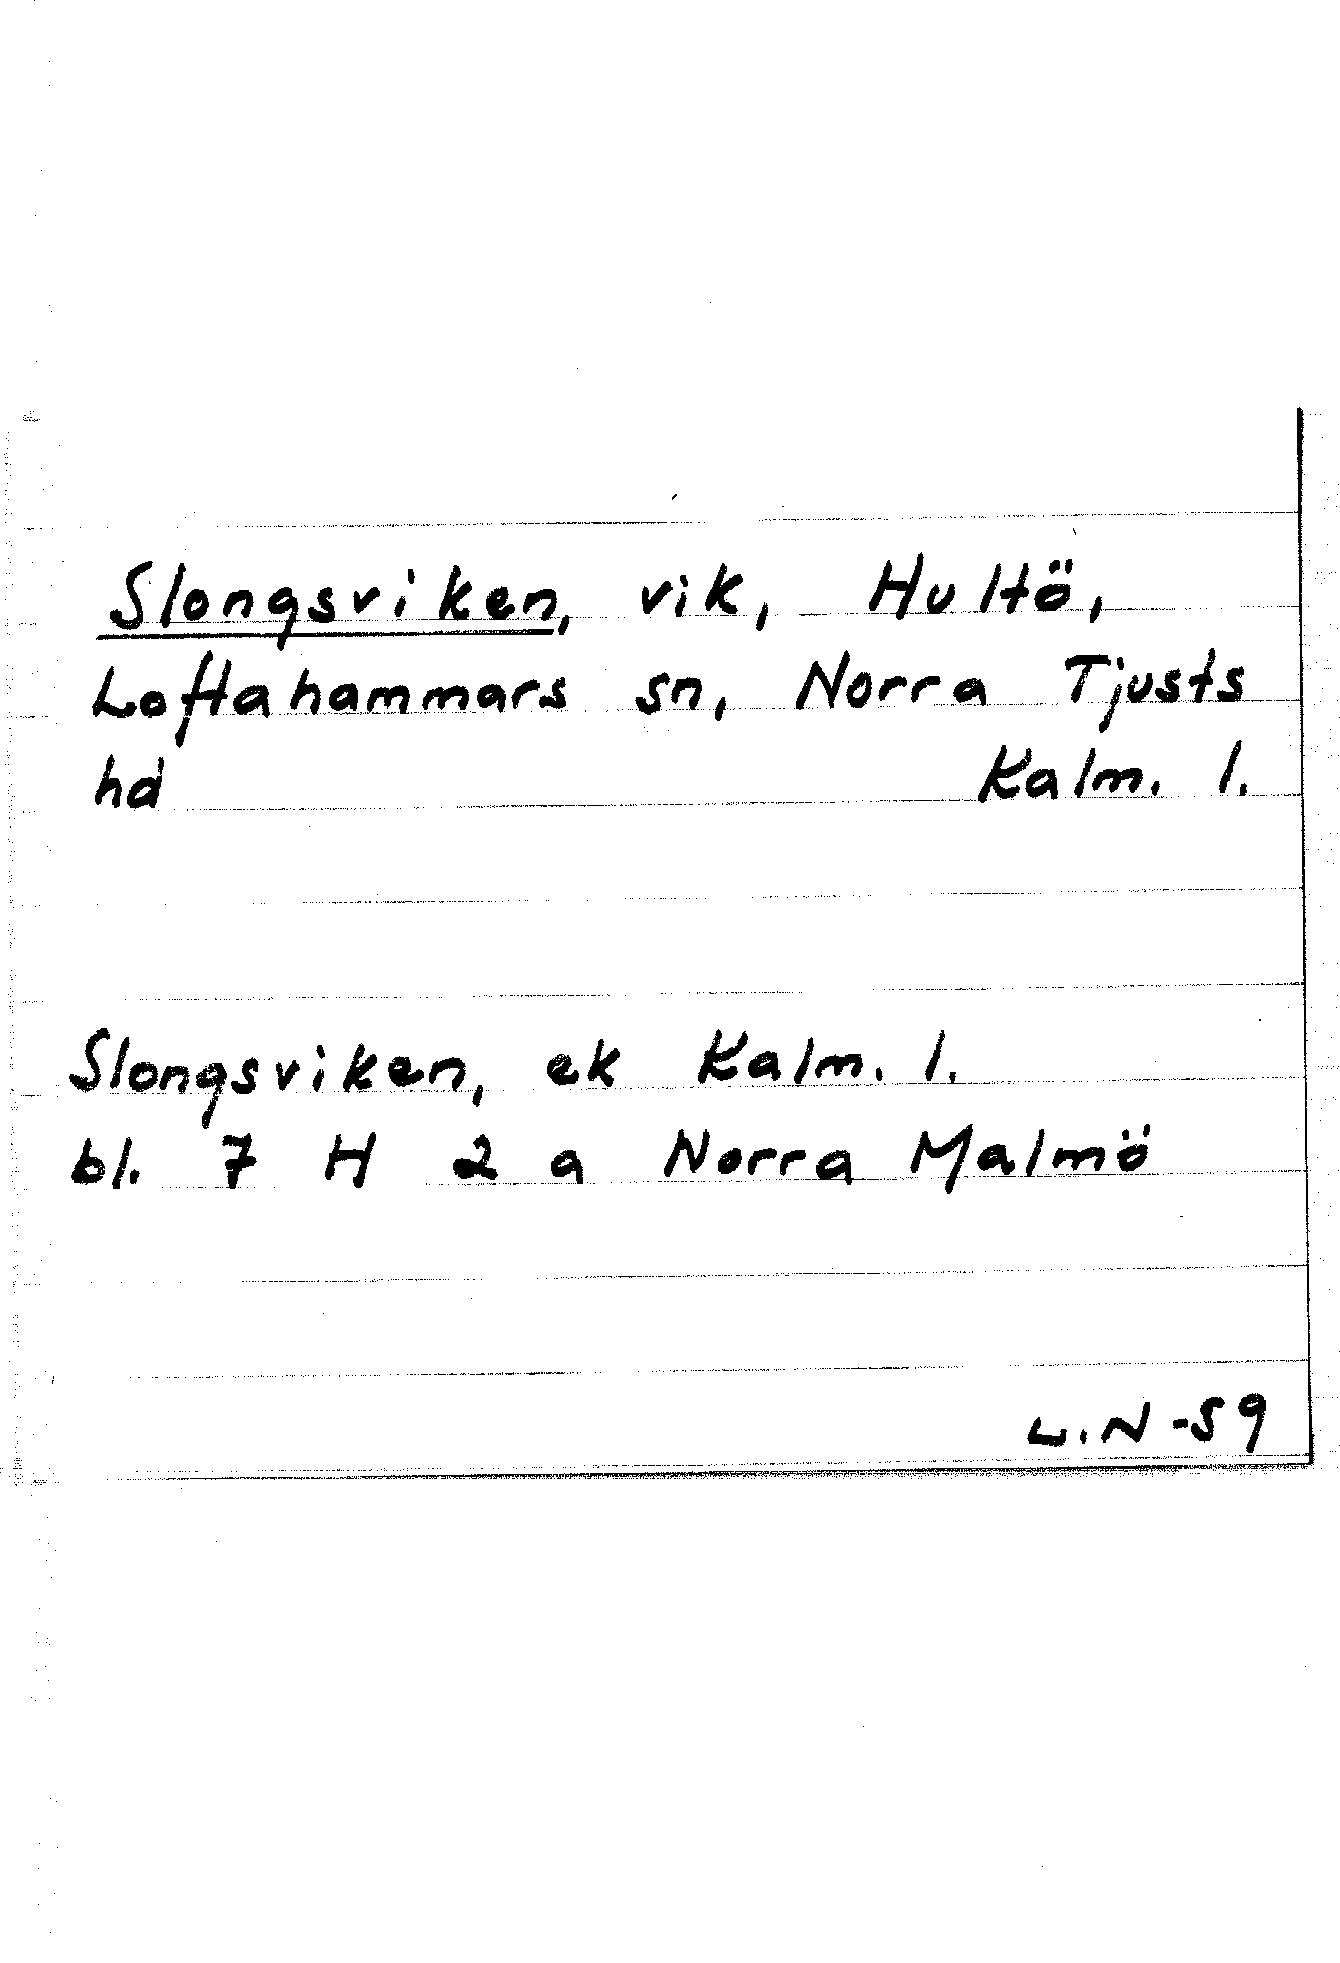 Slongsviken, vik, Hultö,
Loftahammars sn, Norra Tjusts
hd Kalm. l.
Slongsviken, ek Kalm. l.
bl. 7 H 2 a Norra Malmö
L.N -59